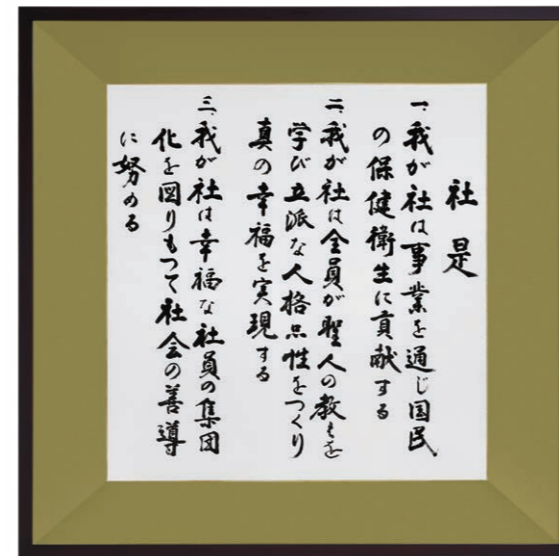 社是
一、我が社は事業を通じ国民
の保健衛生に貢献する
二、我が社は全員が聖人の教えを
学び立派な人格品性をつくり
真の幸福を実現する
三、我が社は幸福な社員の集団
化を図りもつて社会の善導
に努める